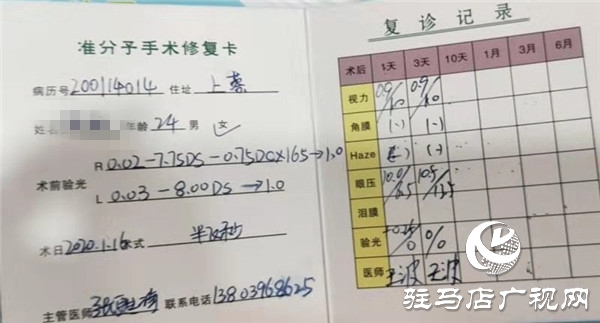 准分子手术修复卡
病历号 200114014 住址 上蔡
姓名 年龄 24 男 女
R 0.02 -7.75DS -0.75DC×165→1.0
术前验光
L 0.03 -8.00DS→1.0
术日 2020.1.16 术式 半飞秒
主管医师 联系电话 13803968625
复诊记录
术后 1天 3天 10天 1月 3月 6月
视力 0.9/1.0 0.9/1.0
角膜 (-) (-)
Haze (-) (-)
眼压
泪膜
验光
医师 王波 王波
驻马店广视网